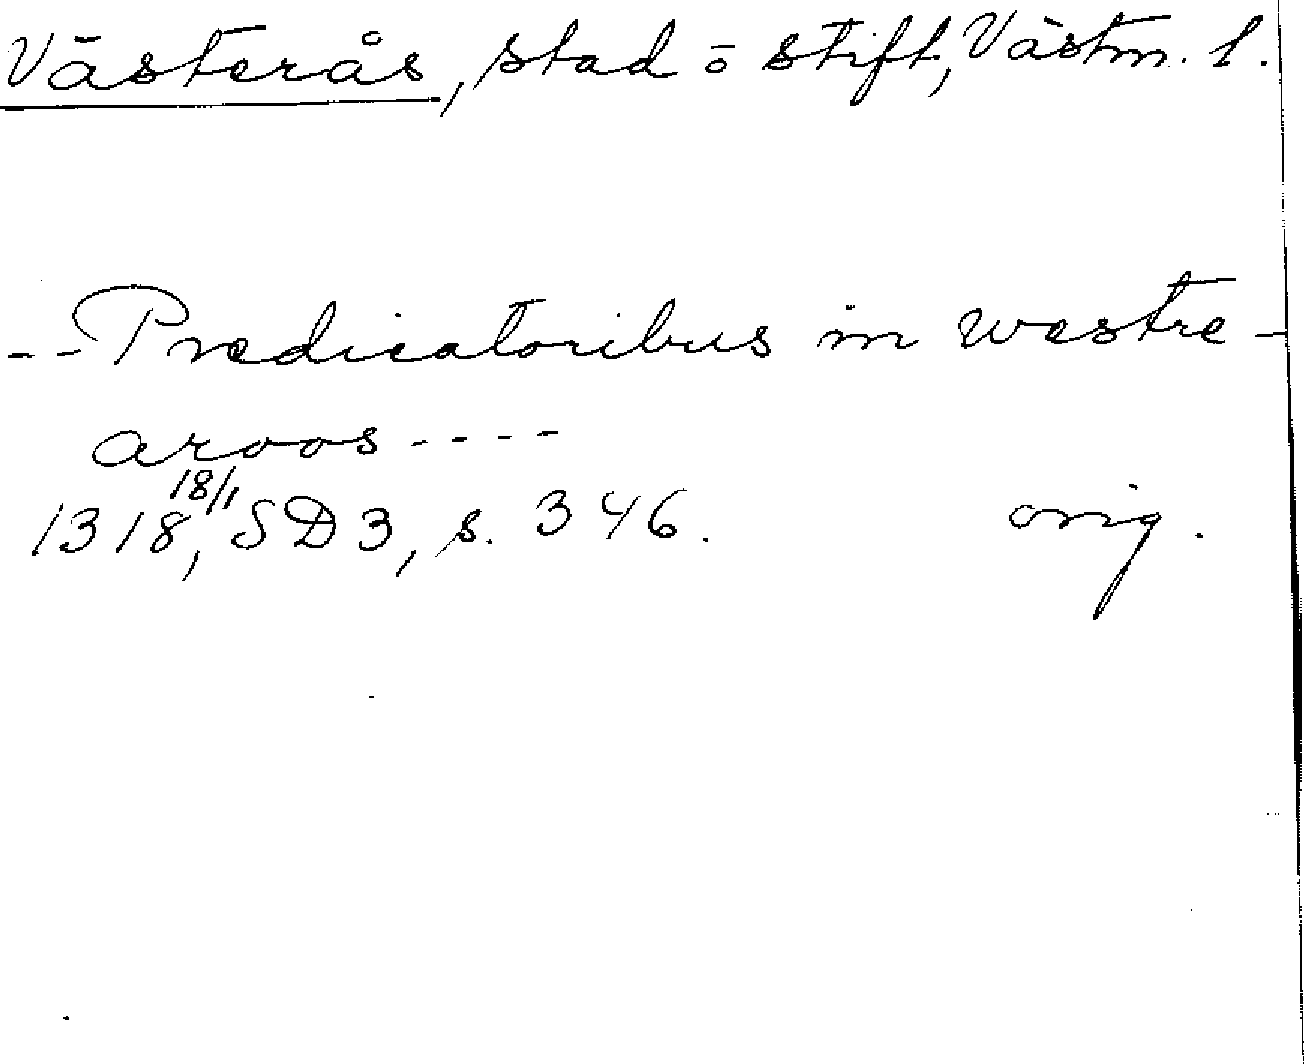 Västerås, stad o stift, Västm. l.
-- Predicatoribus in westre-
aroos ----
1318 18/1, SD 3, s. 346. orig.